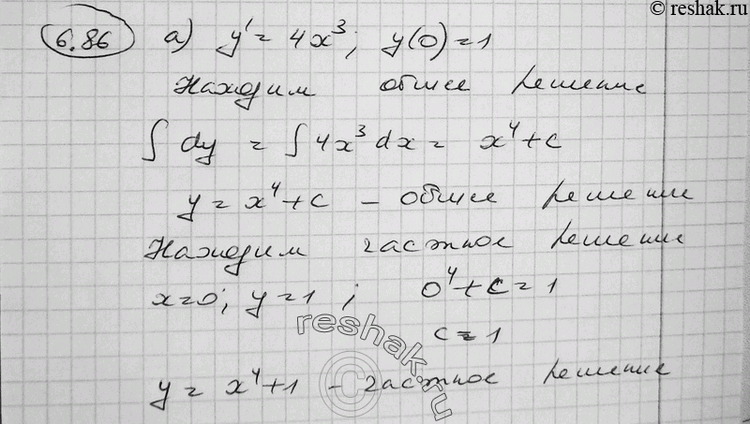 © reshak.ru
6.86 а) y' = 4x³; y(0)=1
Находим общее решение
∫ dy = ∫ 4x³ dx = x⁴+c
y = x⁴+c – общее решение
Находим частное решение
x=0; y=1; 0⁴+c=1
c=1
y = x⁴+1 – частное решение
reshak.ru
©